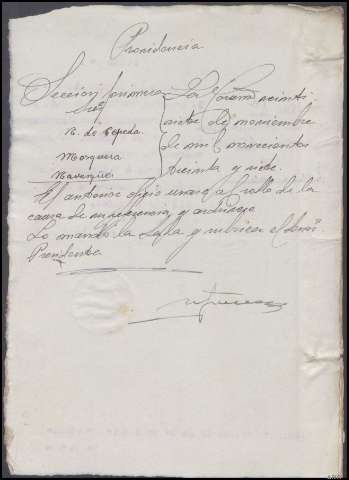 Providencia
Sección primera
Sres
R. de Cepeda.
Mosquera
Navarijos
La Coruña veinti
siete de noviembre
de mil novecientos
treinta y siete.
El anterior oficio unase al rollo de la
causa de su referencia, y
Lo mandó la Sala y rubrica el Señor
Presidente